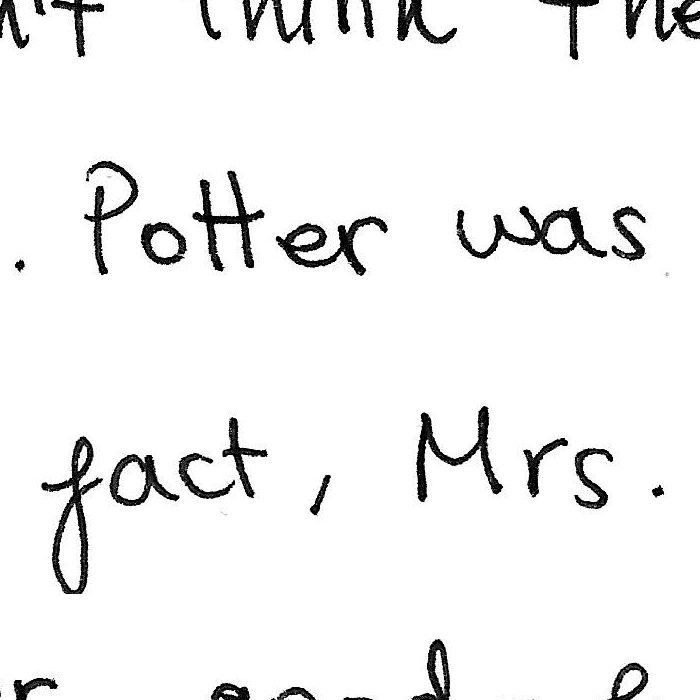 think the
. Potter was
fact, Mrs.